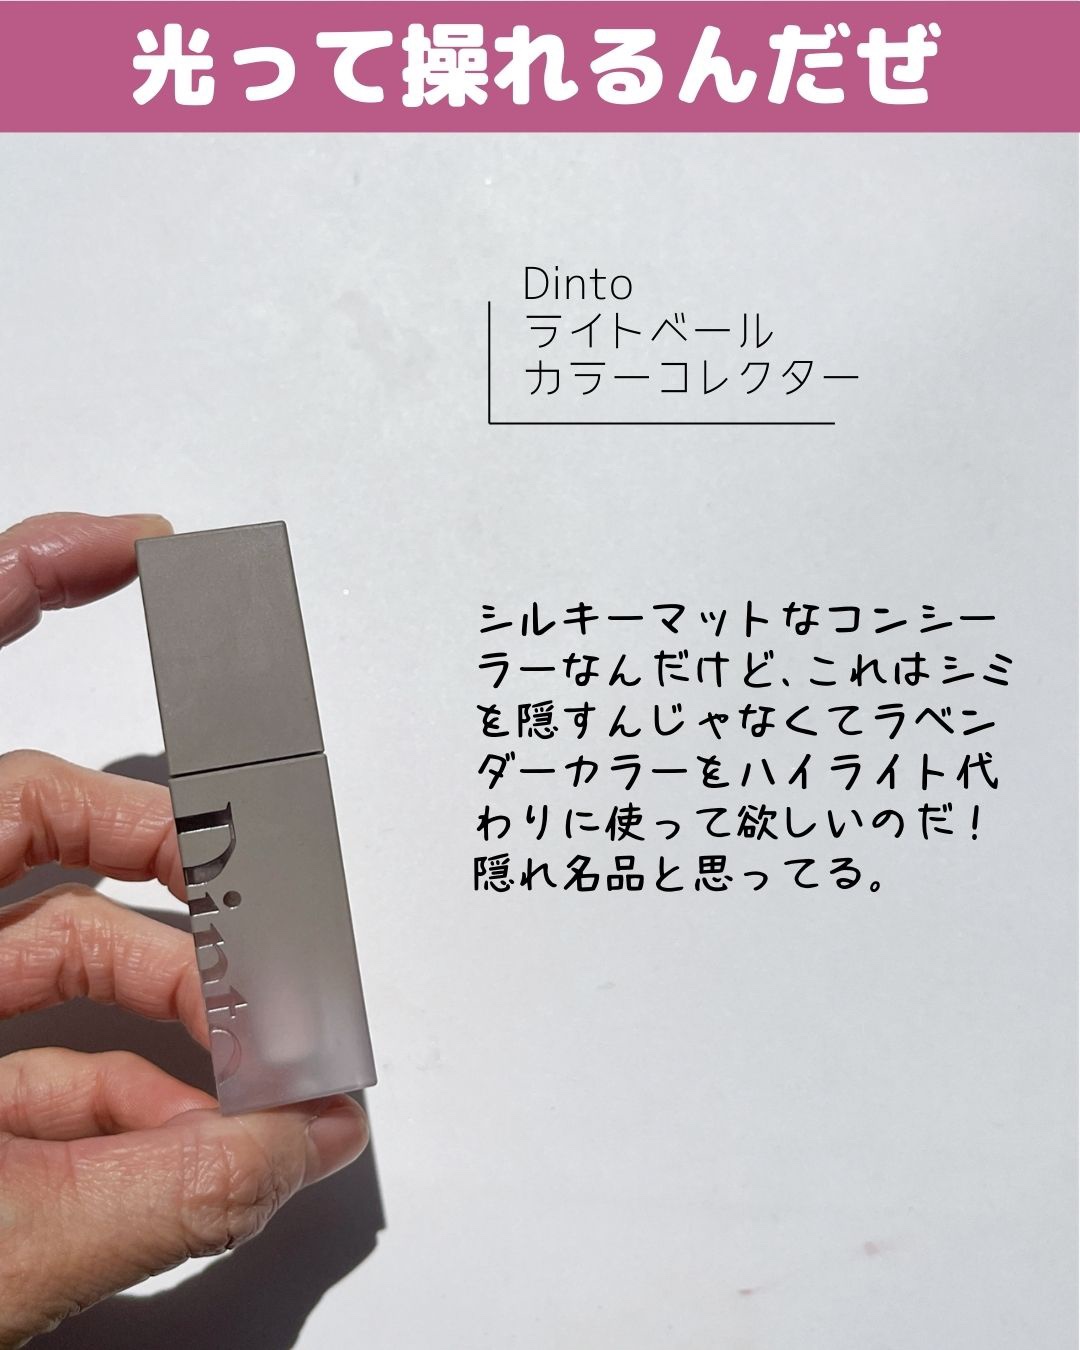 光って操れるんだぜ
Dinto
ライトベール
カラーコレクター
シルキーマットなコンシー
ラーなんだけど、これはシミ
を隠すんじゃなくてラベン
ダーカラーをハイライト代
わりに使って欲しいのだ！
隠れ名品と思ってる。
Dinto